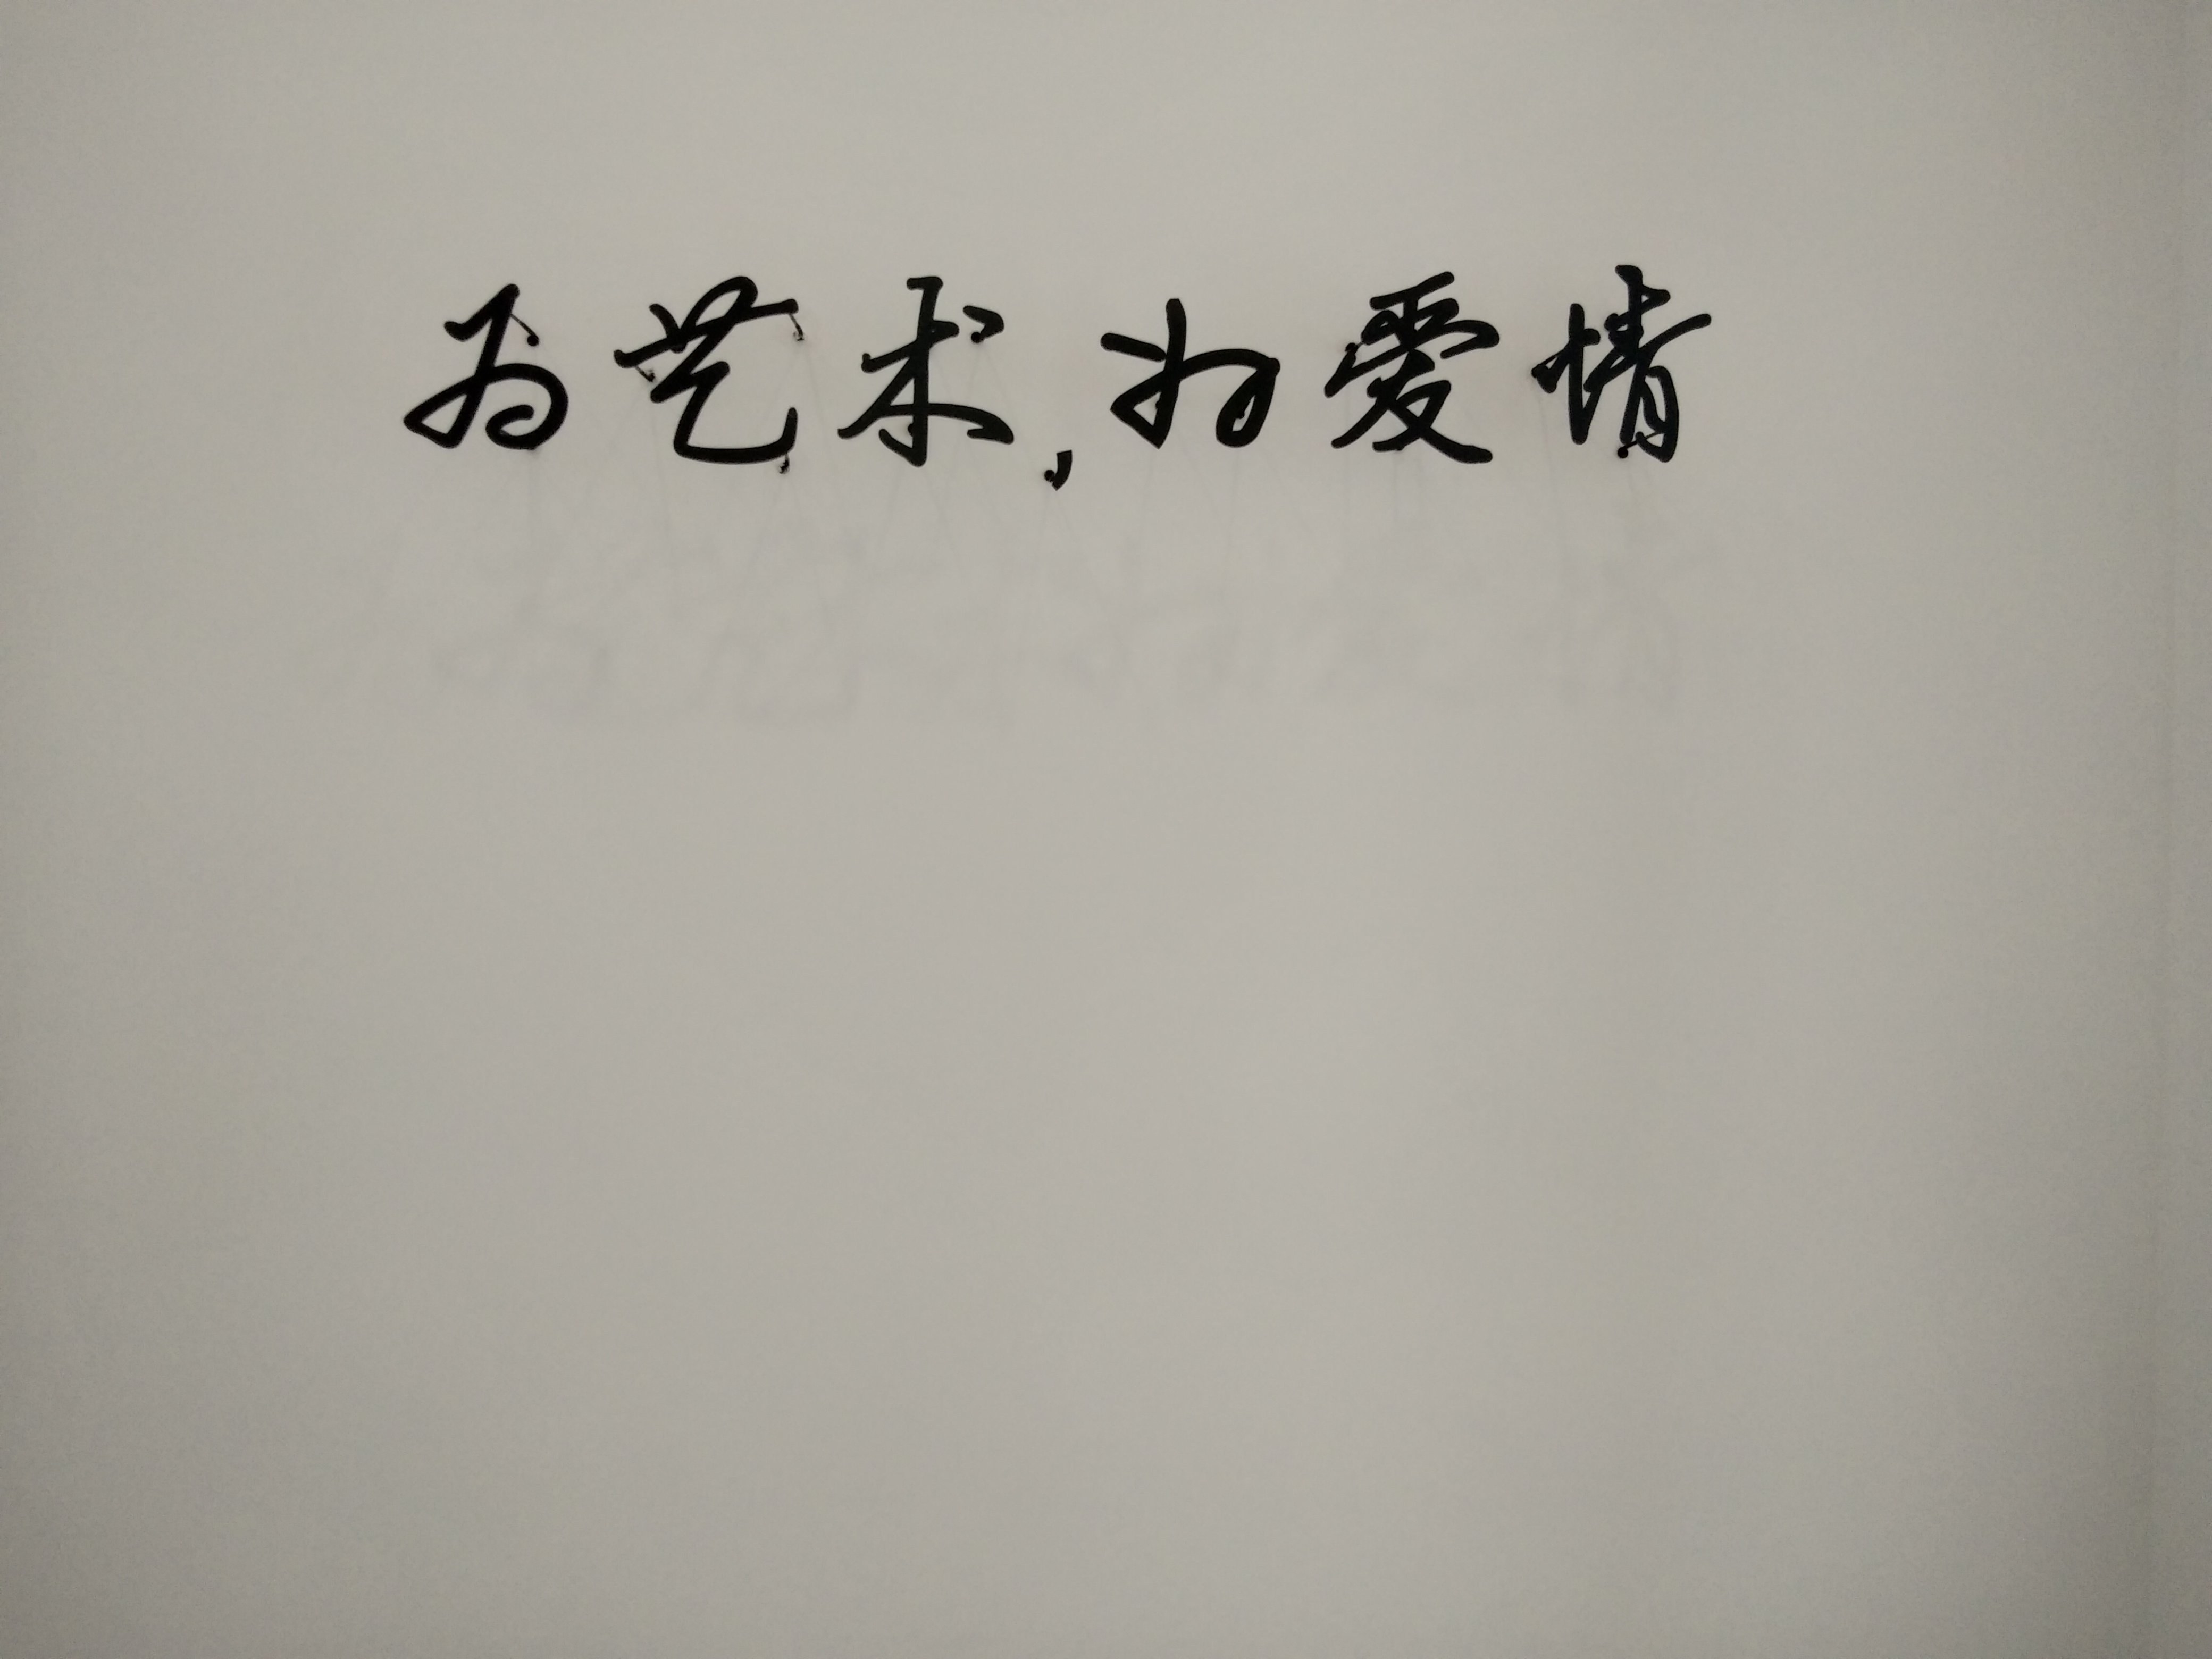 为艺术,为爱情